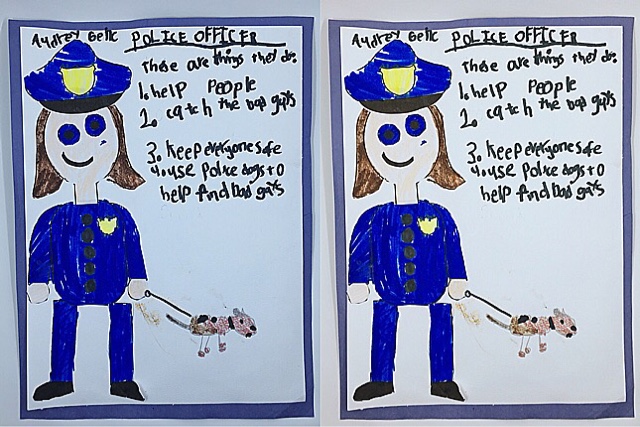 POLICE OFFICER
These are things they do:
1. help People
2. catch the bad guys
3. Keep everyone safe
4 use Police dogs to
help find bad guys
POLICE OFFICER
These are things they do:
1. help People
2. catch the bad guys
3. Keep everyone safe
4 use Police dogs to
help find bad guys